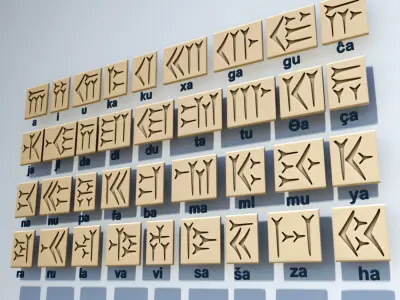 𐎠 𐎡 𐎢 𐎣 𐎤 𐎧 𐎥 𐎦 𐎨
a i u ka ku xa ga gu ĉa
𐎩 𐎪 𐎭 𐎮 𐎯 𐎫 𐎬 𐎰 𐏂
ja ji da di du ta tu Θa ça
𐎴 𐎵 𐎱 𐎳 𐎲 𐎶 𐎷 𐎸 𐎹
na nu pa fa ba ma mi mu ya
𐎼 𐎽 𐎾 𐎺 𐎻 𐎿 𐏁 𐏀 𐏃
ra ru la va vi sa ša za ha